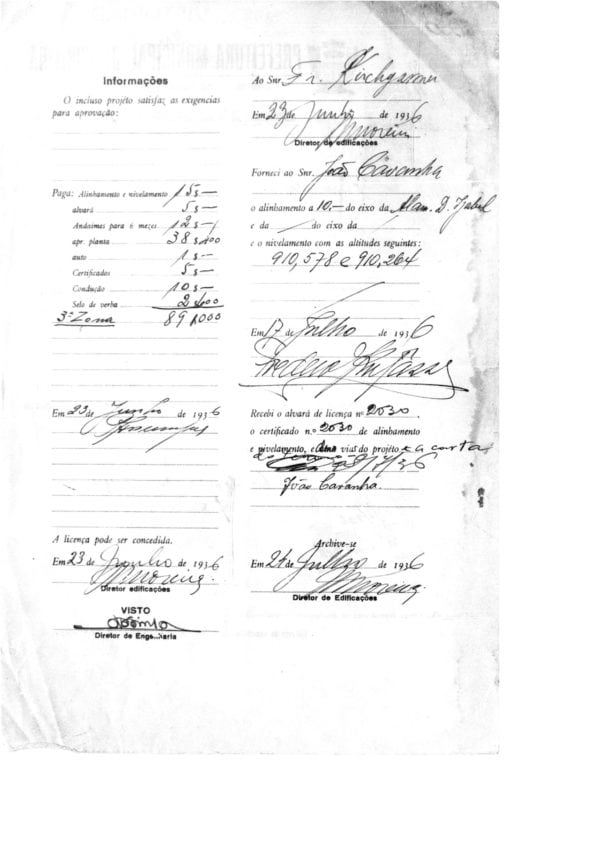 Informações
O incluso projéto satisfaz as exigencias
para aprovação:
Paga: Alinhamento e nivelamento 15$—
alvará 5$—
Andáimes para 6 mezes 12$—
apr. planta 38$400
auto 1$—
Certificados 5$—
Condução 10$—
Selo de verba 2$600
3ª Zona 89$000
Em 23 de Junho de 1936
A licença pode ser concedida.
Em 23 de Junho de 1936
Diretor edificações
VISTO
Diretor de Engenharia
Ao Snr. Fr. Kirchgassner
Em 23 de Junho de 1936
Diretor de edificações
Forneci ao Snr. João Cavanha
o alinhamento a 10.— do eixo da Alam. D. Izabel
e da — do eixo da
e o nivelamento com as altitudes seguintes:
910,578 e 910,264
Em 17 de Julho de 1936
Recebi o alvará de licença nº 2030,
o certificado n.º 2030 de alinhamento
e nivelamento, e viat do projéto e a carta
João Cavanha.
Archive-se
Em 24 de Julho de 1936
Diretor de Edificações